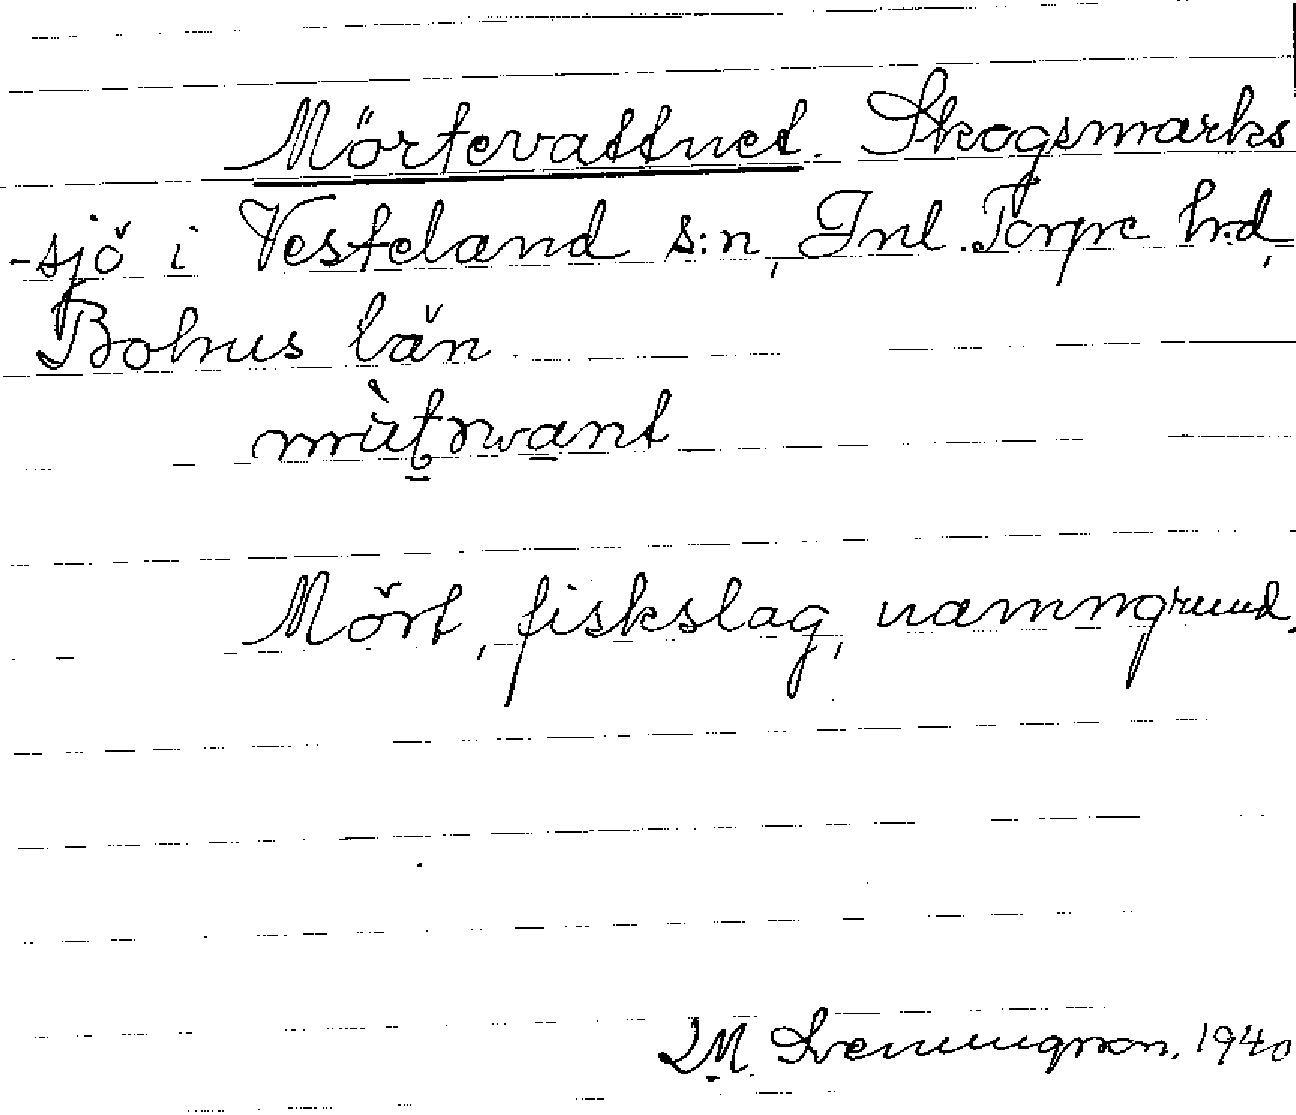 Mörtevattnet. Skogsmarks
-sjö i Vesteland s:n, Inl. Torpe h:d,
Bohus län
Mört, fiskslag, namngrund.
Svenungsson. 1940